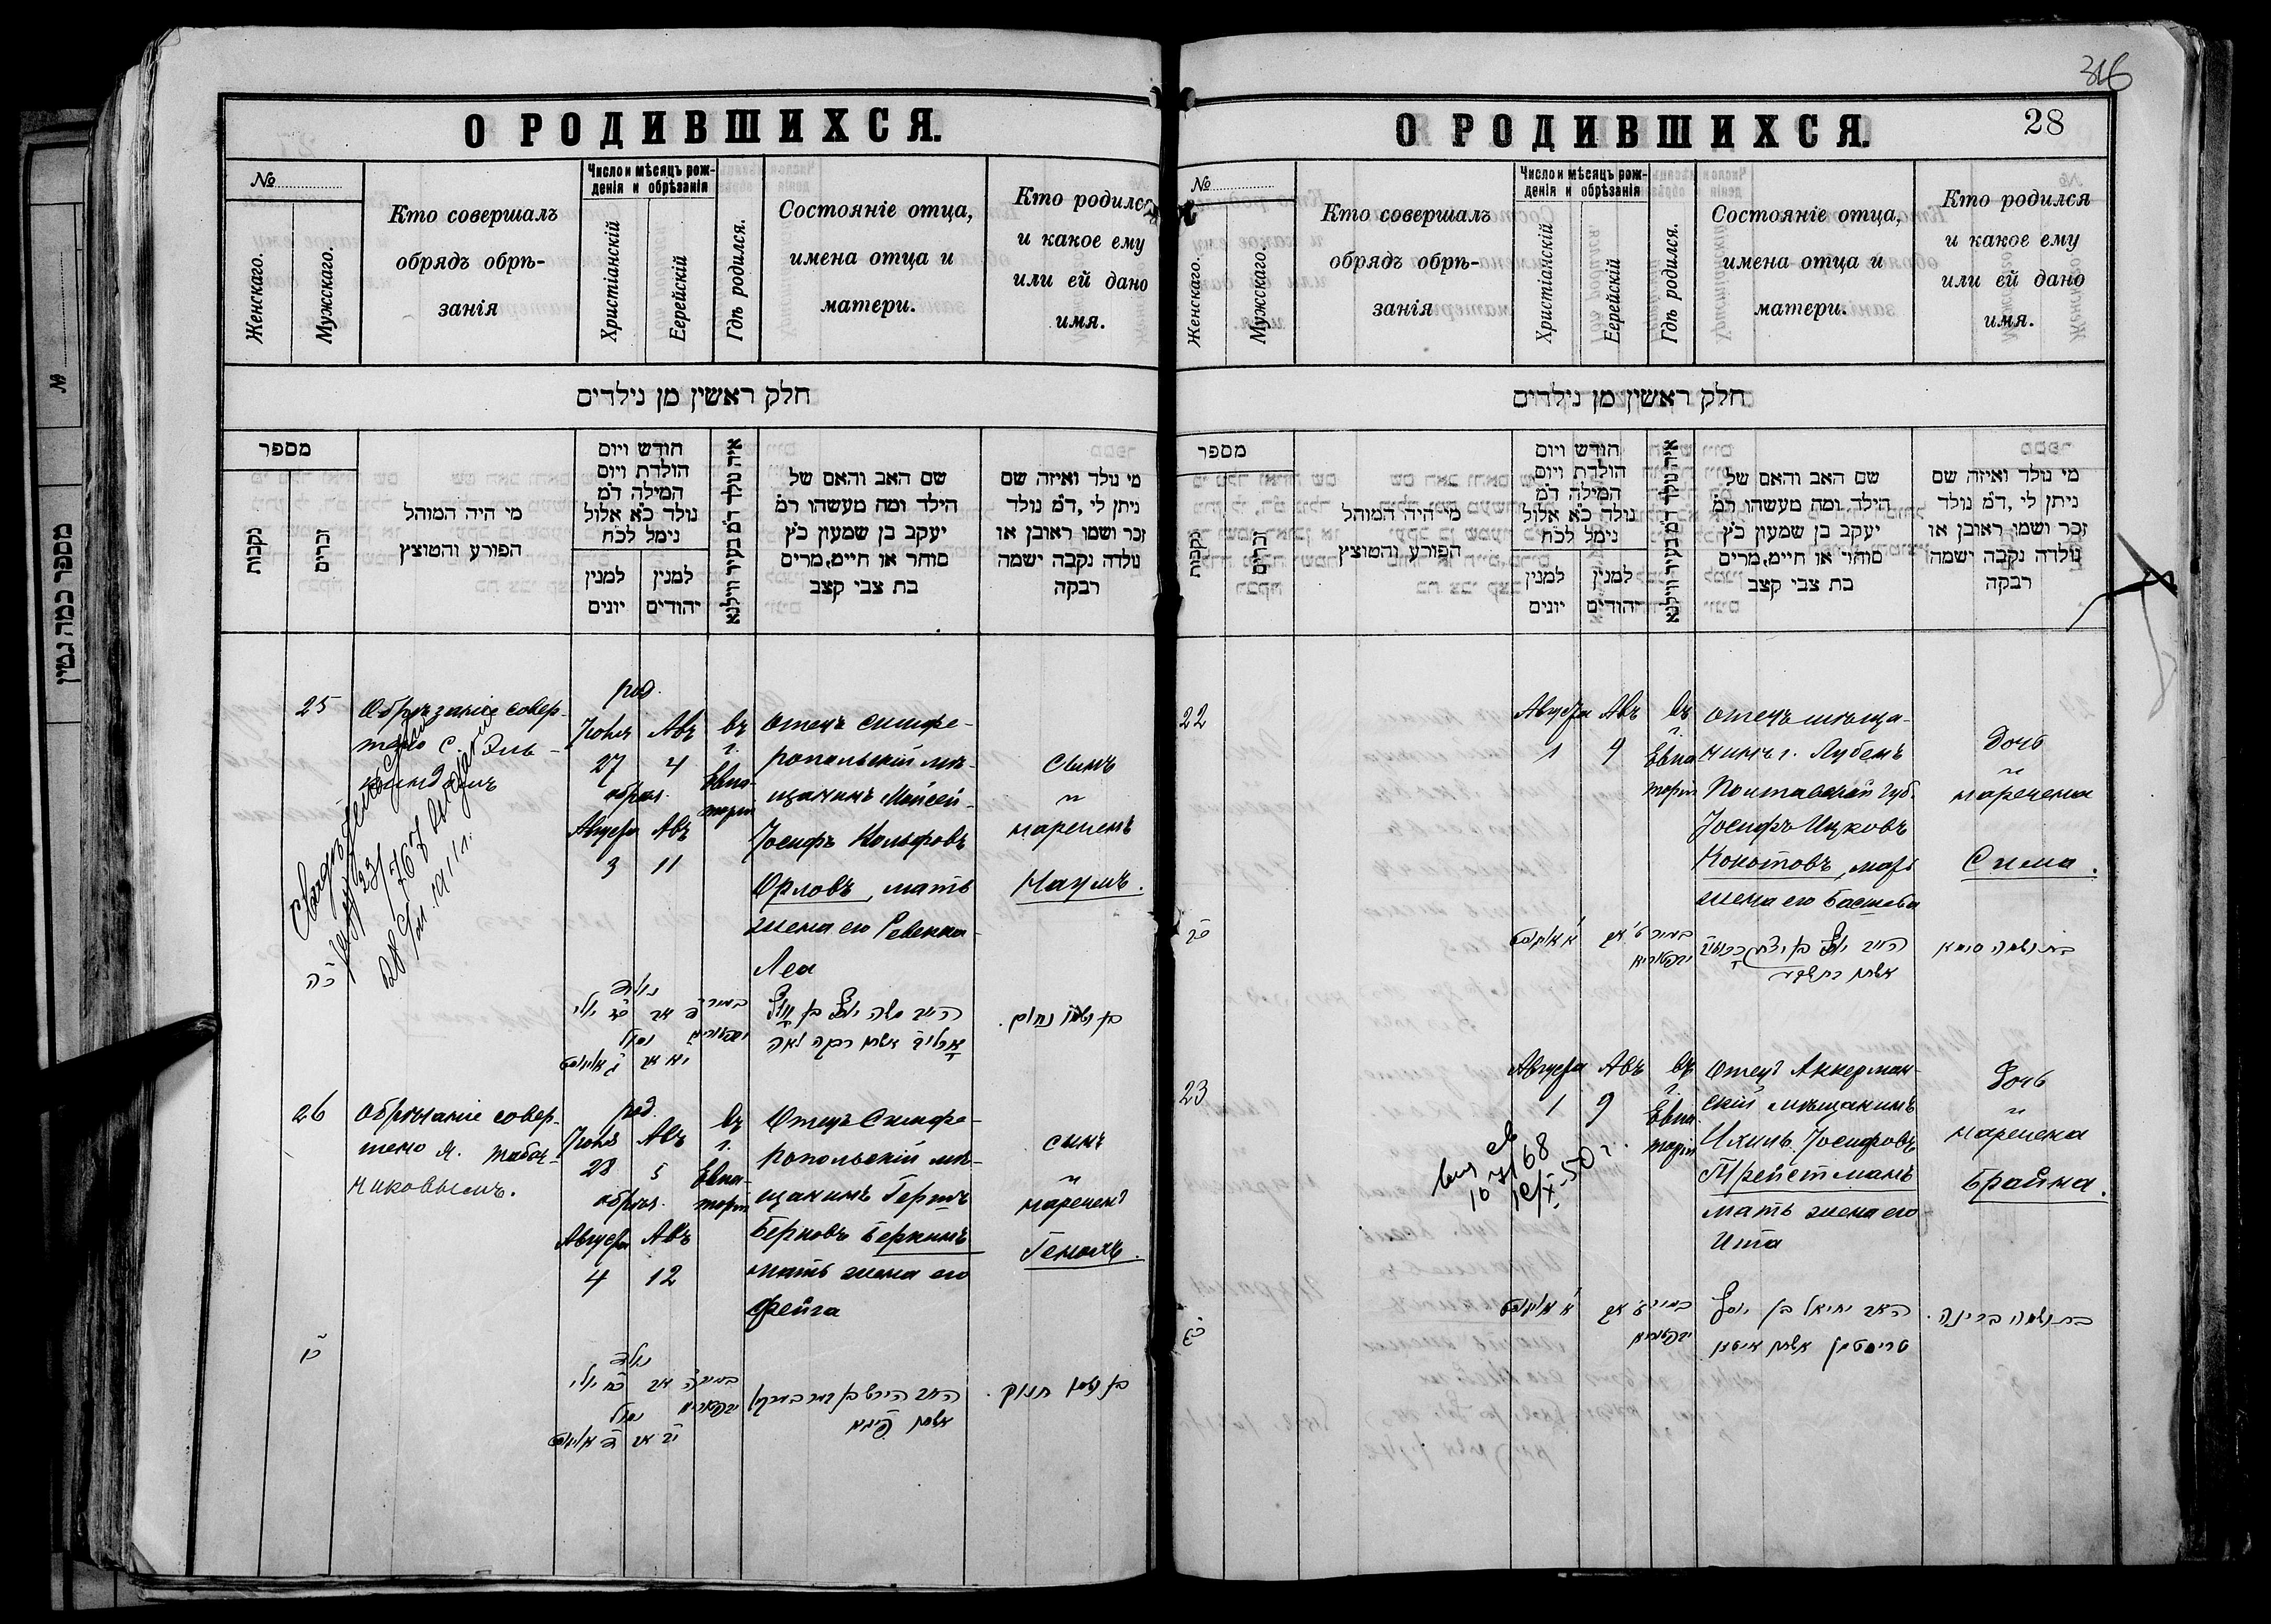 О РОДИВШИХСЯ.
№
Женскаго.
Мужскаго.
Кто совершалъ
обрядъ обрѣ-
занія
Число и мѣсяцъ рож-
денія и обрѣзанія
Христіанскій
Еерейскій
Гдѣ родился.
Состояніе отца,
имена отца и
матери.
Кто родился
и какое ему
или ей дано
имя.
חלק ראשין מן נילדים
מספר
נקבות
זכרים
מי היה המוהל
הפורע והמוצץ
חודש ויום
הולדת ויום
המילה ד׳מ
נולד כ׳א אלול
נימל לכ׳ח
למנין
יונים
למנין
יהודים
איה נולד ד׳מ בעיר ווילנא
שם האב והאם של
הילד ומה מעשהו ד׳מ
יעקב בן שמעון כ׳ץ
סוחר או חיים, מרים
בת צבי קצב
מי נולד ואיזה שם
ניתן לי, ד׳מ נולד
זכר ושמו ראובן או
נולדה נקבה ישמה
רבקה
25
Обрѣзаніе совер-
шено С. Эль-
киндомъ
род.
Іюля Авъ
27 4
обрѣз.
Августа Авъ
3 11
въ
г.
Евпа-
торіи
Отецъ симфе-
ропольскій мѣ-
щанинъ Мойсей-
Іосифъ Вольфовъ
Орловъ, мать
жена его Ревекка-
Леа
Сынъ
"
нареченъ
Наумъ.
כה
בן ושמו נחום.
26
Обрѣзаніе совер-
шено Я. Табач-
никовымъ.
род.
Іюля Авъ
28 5
обрѣз.
Августа Авъ
4 12
въ
г.
Евпа-
торіи
Отецъ Симфе-
ропольскій мѣ-
щанинъ Гершъ
Берковъ Беркинъ
мать жена его
Фейга
сынъ
"
нареченъ
Генохъ.
כו
בן ושמו חנוך.
316
28
О РОДИВШИХСЯ.
№
Женскаго.
Мужскаго.
Кто совершалъ
обрядъ обрѣ-
занія
Число и мѣсяцъ рож-
денія и обрѣзанія
Христіанскій
Еерейскій
Гдѣ родился.
Состояніе отца,
имена отца и
матери.
Кто родился
и какое ему
или ей дано
имя.
חלק ראשין מן נילדים
מספר
נקבות
זכרים
מי היה המוהל
הפורע והמוצץ
חודש ויום
הולדת ויום
המילה ד׳מ
נולד כ׳א אלול
נימל לכ׳ח
למנין
יונים
למנין
יהודים
איה נולד ד׳מ בעיר ווילנא
שם האב והאם של
הילד ומה מעשהו ד׳מ
יעקב בן שמעון כ׳ץ
סוחר או חיים, מרים
בת צבי קצב
מי נולד ואיזה שם
ניתן לי, ד׳מ נולד
זכר ושמו ראובן או
נולדה נקבה ישמה
רבקה
22
Августа Авъ
1 9
въ
г.
Евпа
торіи
Отецъ мѣща-
нинъ г. Лубенъ
Полтавской губ.
Іосифъ Ицковъ
Кокотовъ, мать
жена его Башева
Дочь
"
наречена
Сима.
בת ושמה סימא
23
Августа Авъ
1 9
въ
г.
Евпа
торіи
Отецъ Аккерман-
скій мѣщанинъ
Ихиль Іосифовъ
Трейстманъ
мать жена его
Ита
Дочь
"
наречена
Брайна.
בת ושמה בריינה.